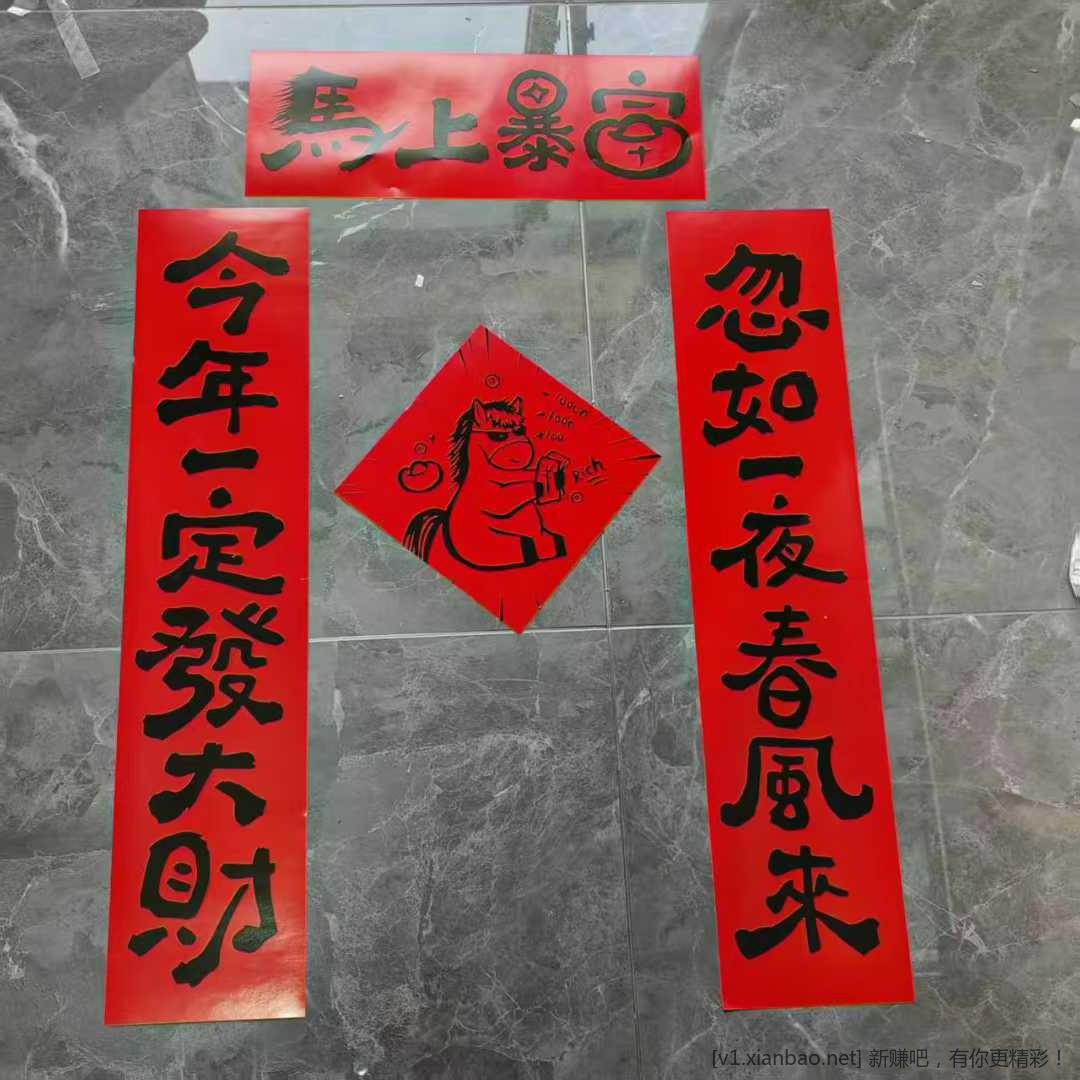 馬上暴富
忽如一夜春風來
今年一定發大財
+10000
+1000
+100
Rich
[v1.xianbao.net] 新赚吧，有你更精彩！